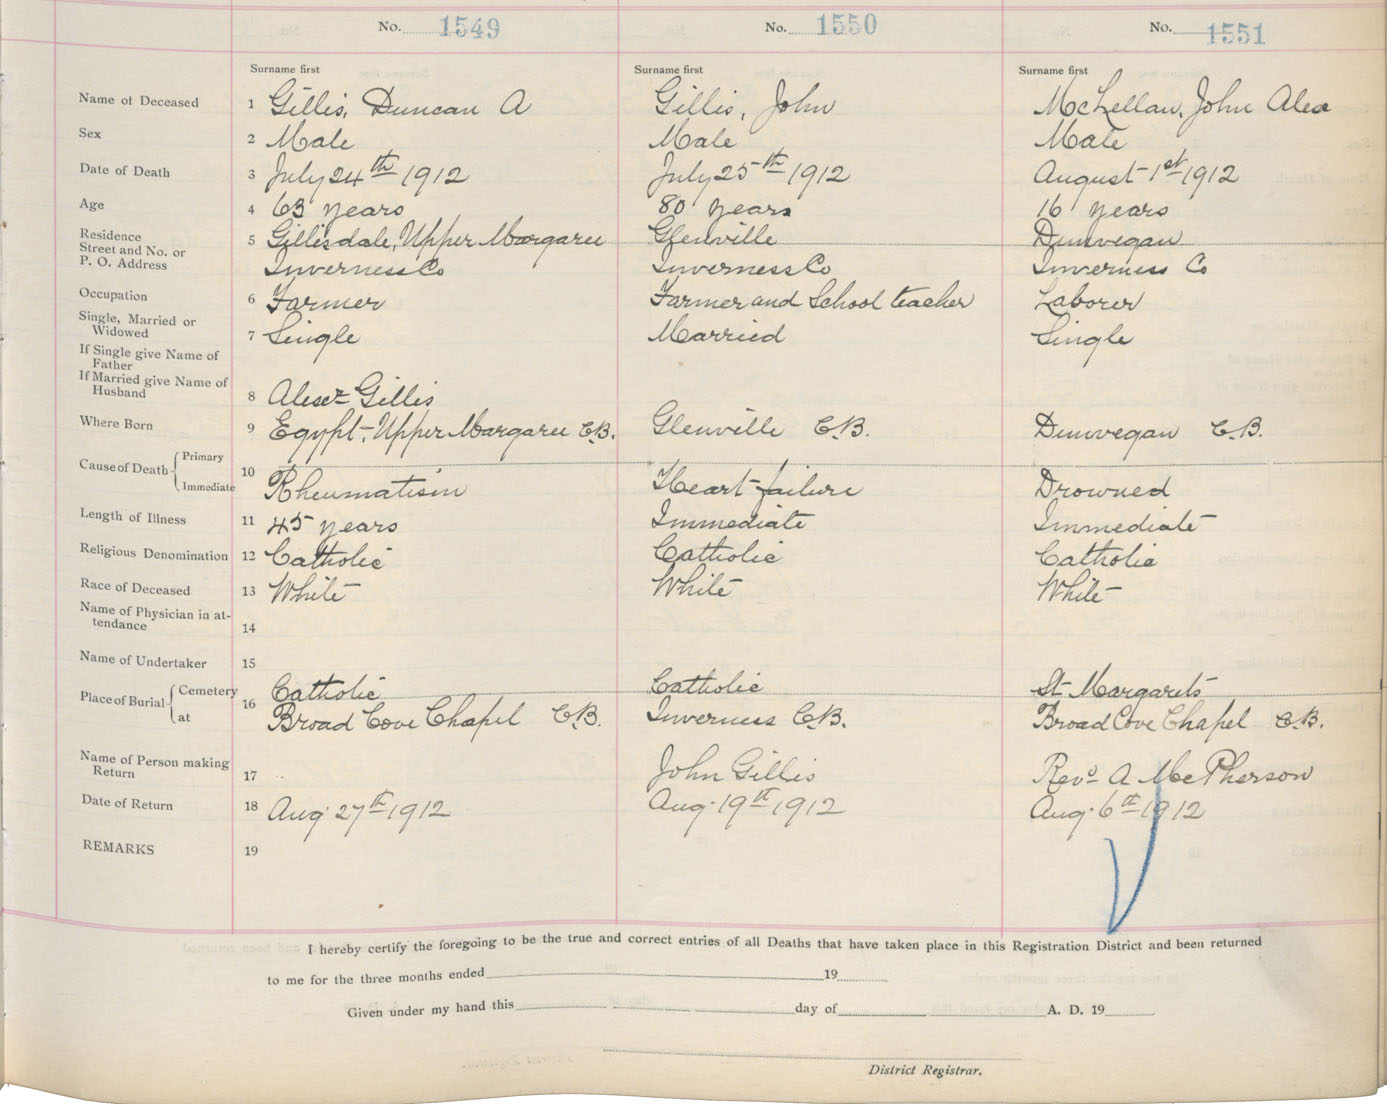 No. 1549 No. 1550 No. 1551
Surname first Surname first Surname first
Name of Deceased 1 Gillis, Duncan A Gillis, John McLellan, John Alex
Sex 2 Male Male Male
Date of Death 3 July 24th 1912 July 25th 1912 August 1st 1912
Age 4 63 years 80 years 16 years
Residence 5 Gillisdale, Upper Margaree Glenville Dunvegan
Street and No. or
P. O. Address Inverness Co Inverness Co Inverness Co
Occupation 6 Farmer Farmer and School teacher Laborer
Single, Married or
Widowed 7 Single Married Single
If Single give Name of
Father
If Married give Name of
Husband 8 Alexr Gillis
Where Born 9 Egypt, Upper Margaree C.B. Glenville C.B. Dunvegan C.B.
Cause of Death Primary 10
Immediate Rheumatism Heart failure Drowned
Length of Illness 11 45 years Immediate Immediate
Religious Denomination 12 Catholic Catholic Catholic
Race of Deceased 13 White White White
Name of Physician in at-
tendance 14
Name of Undertaker 15
Place of Burial Cemetery 16 Catholic Catholic St Margarets
at Broad Cove Chapel C.B. Inverness C.B. Broad Cove Chapel C.B.
Name of Person making
Return 17 John Gillis Revd A McPherson
Date of Return 18 Aug 27th 1912 Aug. 19th 1912 Aug. 6th 1912
REMARKS 19
I hereby certify the foregoing to be the true and correct entries of all Deaths that have taken place in this Registration District and been returned
to me for the three months ended 19
Given under my hand this day of A. D. 19
District Registrar.